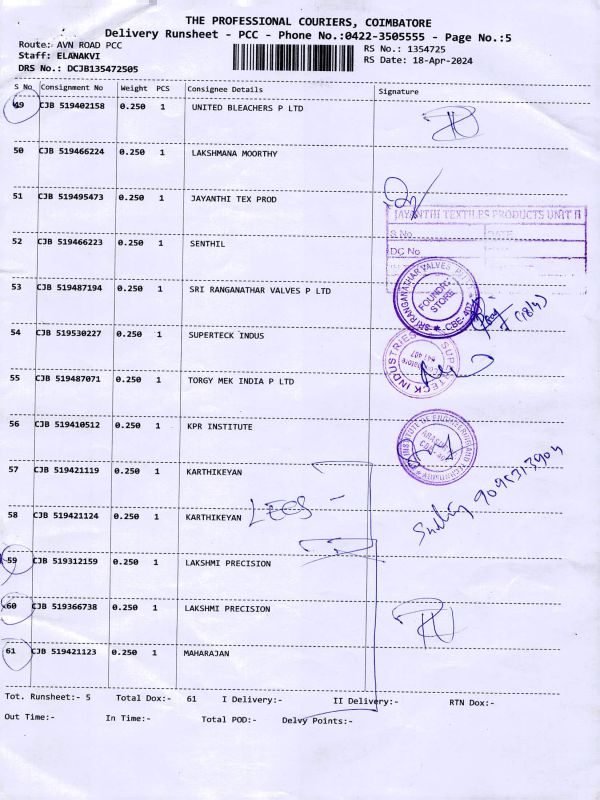 THE PROFESSIONAL COURIERS, COIMBATORE
Delivery Runsheet - PCC - Phone No.:0422-3505555 - Page No.:5
Route: AVN ROAD PCC RS No.: 1354725
Staff: ELANAKVI RS Date: 18-Apr-2024
DRS No.: DCJB135472505
S No Consignment No Weight PCS Consignee Details Signature
49 CJB 519402158 0.250 1 UNITED BLEACHERS P LTD
50 CJB 519466224 0.250 1 LAKSHMANA MOORTHY
51 CJB 519495473 0.250 1 JAYANTHI TEX PROD
JAYANTHI TEXTILES PRODUCTS UNIT II
S.No DATE
52 CJB 519466223 0.250 1 SENTHIL
DC No
53 CJB 519487194 0.250 1 SRI RANGANATHAR VALVES P LTD
SRI RANGANATHAR VALVES
FOUNDRY STORE
CBE-407
(18/4)
54 CJB 519530227 0.250 1 SUPERTECK INDUS
SUPERTECK INDUSTRIES
641 407
55 CJB 519487071 0.250 1 TORGY MEK INDIA P LTD
56 CJB 519410512 0.250 1 KPR INSTITUTE
INSTITUTE OF ENGINEERING AND TECHNOLOGY
57 CJB 519421119 0.250 1 KARTHIKEYAN
58 CJB 519421124 0.250 1 KARTHIKEYAN
59 CJB 519312159 0.250 1 LAKSHMI PRECISION
60 CJB 519366738 0.250 1 LAKSHMI PRECISION
61 CJB 519421123 0.250 1 MAHARAJAN
Tot. Runsheet:- 5 Total Dox:- 61 I Delivery:- II Delivery:- RTN Dox:-
Out Time:- In Time:- Total POD:- Delvy Points:-